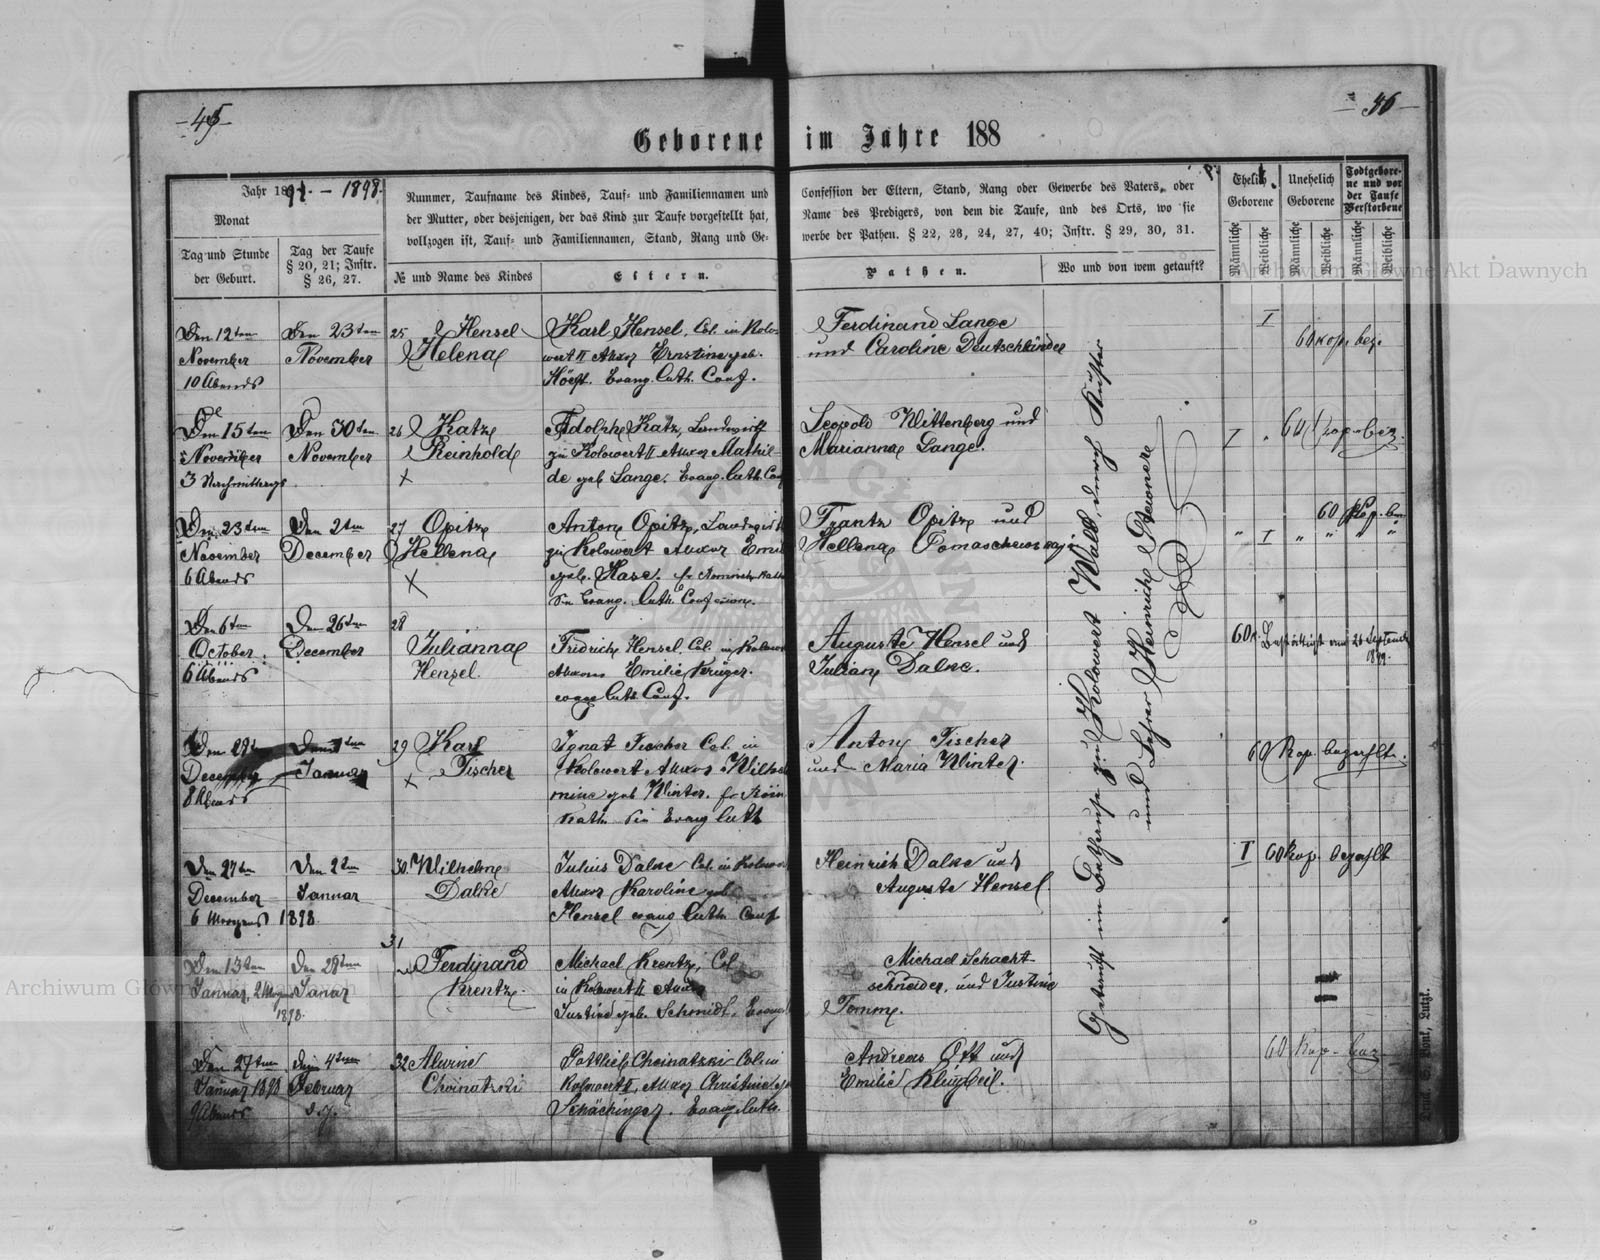 - 45 -
- 46 -
Geborene im Jahre 188
Jahr 1897. – 1898.
Monat
Tag und Stunde
der Geburt.
Tag der Taufe
§ 20, 21; Instr.
§ 26, 27.
Nummer, Taufname des Kindes, Tauf- und Familiennamen und
der Mutter, oder desjenigen, der das Kind zur Taufe vorgestellt hat,
vollzogen ist, Tauf- und Familiennamen, Stand, Rang und Ge-
№ und Name des Kindes
Eltern.
Confession der Eltern, Stand, Rang oder Gewerbe des Vaters, oder
Name des Predigers, von dem die Taufe, und des Orts, wo sie
werbe der Pathen. § 22, 23, 24, 27, 40; Instr. § 29, 30, 31.
Pathen.
Wo und von wem getauft?
Ehelich
Geborene
Unehelich
Geborene
Todtgebore-
ne und vor
der Taufe
Verstorbene
Männliche
Weibliche
Männliche
Weibliche
Männliche
Weibliche
Den 12ten
November
10 Abends
Den 23ten
November
25 Hensel
Helena
Karl Hensel, Col. in Kolo-
wert II Uxor Ernstine geb.
Evang. Luth. Conf.
Ferdinand Lange
und Caroline Deutschländer
I
60 kop. bez.
Den 15ten
November
3 Nachmittags
Den 30ten
November
26 Katz
Reinhold
×
Adolph Katz, Landwirth
zu Kolowert II Uxor Mathil-
de geb. Lange. Evang. Luth. Conf
Leopold Wittenberg und
Marianna Lange.
I "
60 kop. bez.
Den 23ten
November
6 Abends
Den 2ten
December
27 Opitz
Hellena
×
Anton Opitz, Landwirth
zu Kolowert Uxor Emil
geb. Hase. Er Römisch Kath
Sie Evang. Luth. Confession.
Frantz Opitz und
Hellena Tomaschewskaja
" I " " " "
60 Kop. bez
Den 6ten
October
6 Abends
Den 26ten
December
28
Julianna
Hensel.
Fridrich Hensel, Col. in Kolow
Uxor Emilie Krüger.
evang Luth. Conf.
Auguste Hensel und
Julian Dalke.
60 k. Bestättigt am 26 September
1899.
Den 28ten
December
8 Abends
Den 1ten
Januar
29 Karl
Fischer
×
Ignat Fischer Col. in
Kolowert Uxor Wilhel
mine geb Winter. Er Röm
Kath. Sie Evang Luth
Anton Fischer
und Maria Winter.
60 Kop. bezahlt.
Den 27ten
December
6 Morgens
Den 2ten
Januar
1898.
30. Wilhelm
Dalke
Julius Dalke Col. in Kolowert
Uxor Karoline geb.
Hensel evang Luth. Conf
Heinrich Dalke und
Auguste Hensel
I 60 Kop. bezahlt
Den 13ten
Januar, 2 Morgens
1898.
Den 28ten
Januar
31
Ferdinand
Krentz.
Michael Krentz, Col
in Kolowert II Uxor
Justine geb. Schmidt. Evang
Michael Schacht-
schneider, und Justine
Tomm.
Den 27ten
Januar 1898
9 Abends
Den 4ten
Februar
32 Alwine
Choinatzki
Gottlieb Choinatzki Col. in
Kolowert II, Uxor Christine geb
Schächinger. Evang. Luth.
Andreas Ott und
Emilie Kleinbeil.
60 Kop. bez
Getauft im Bethause zu Kolowert Wald, durch Küster
und Lehrer Heinrich
Archiwum Główne Akt Dawnych
Archiwum Główne Akt Dawnych